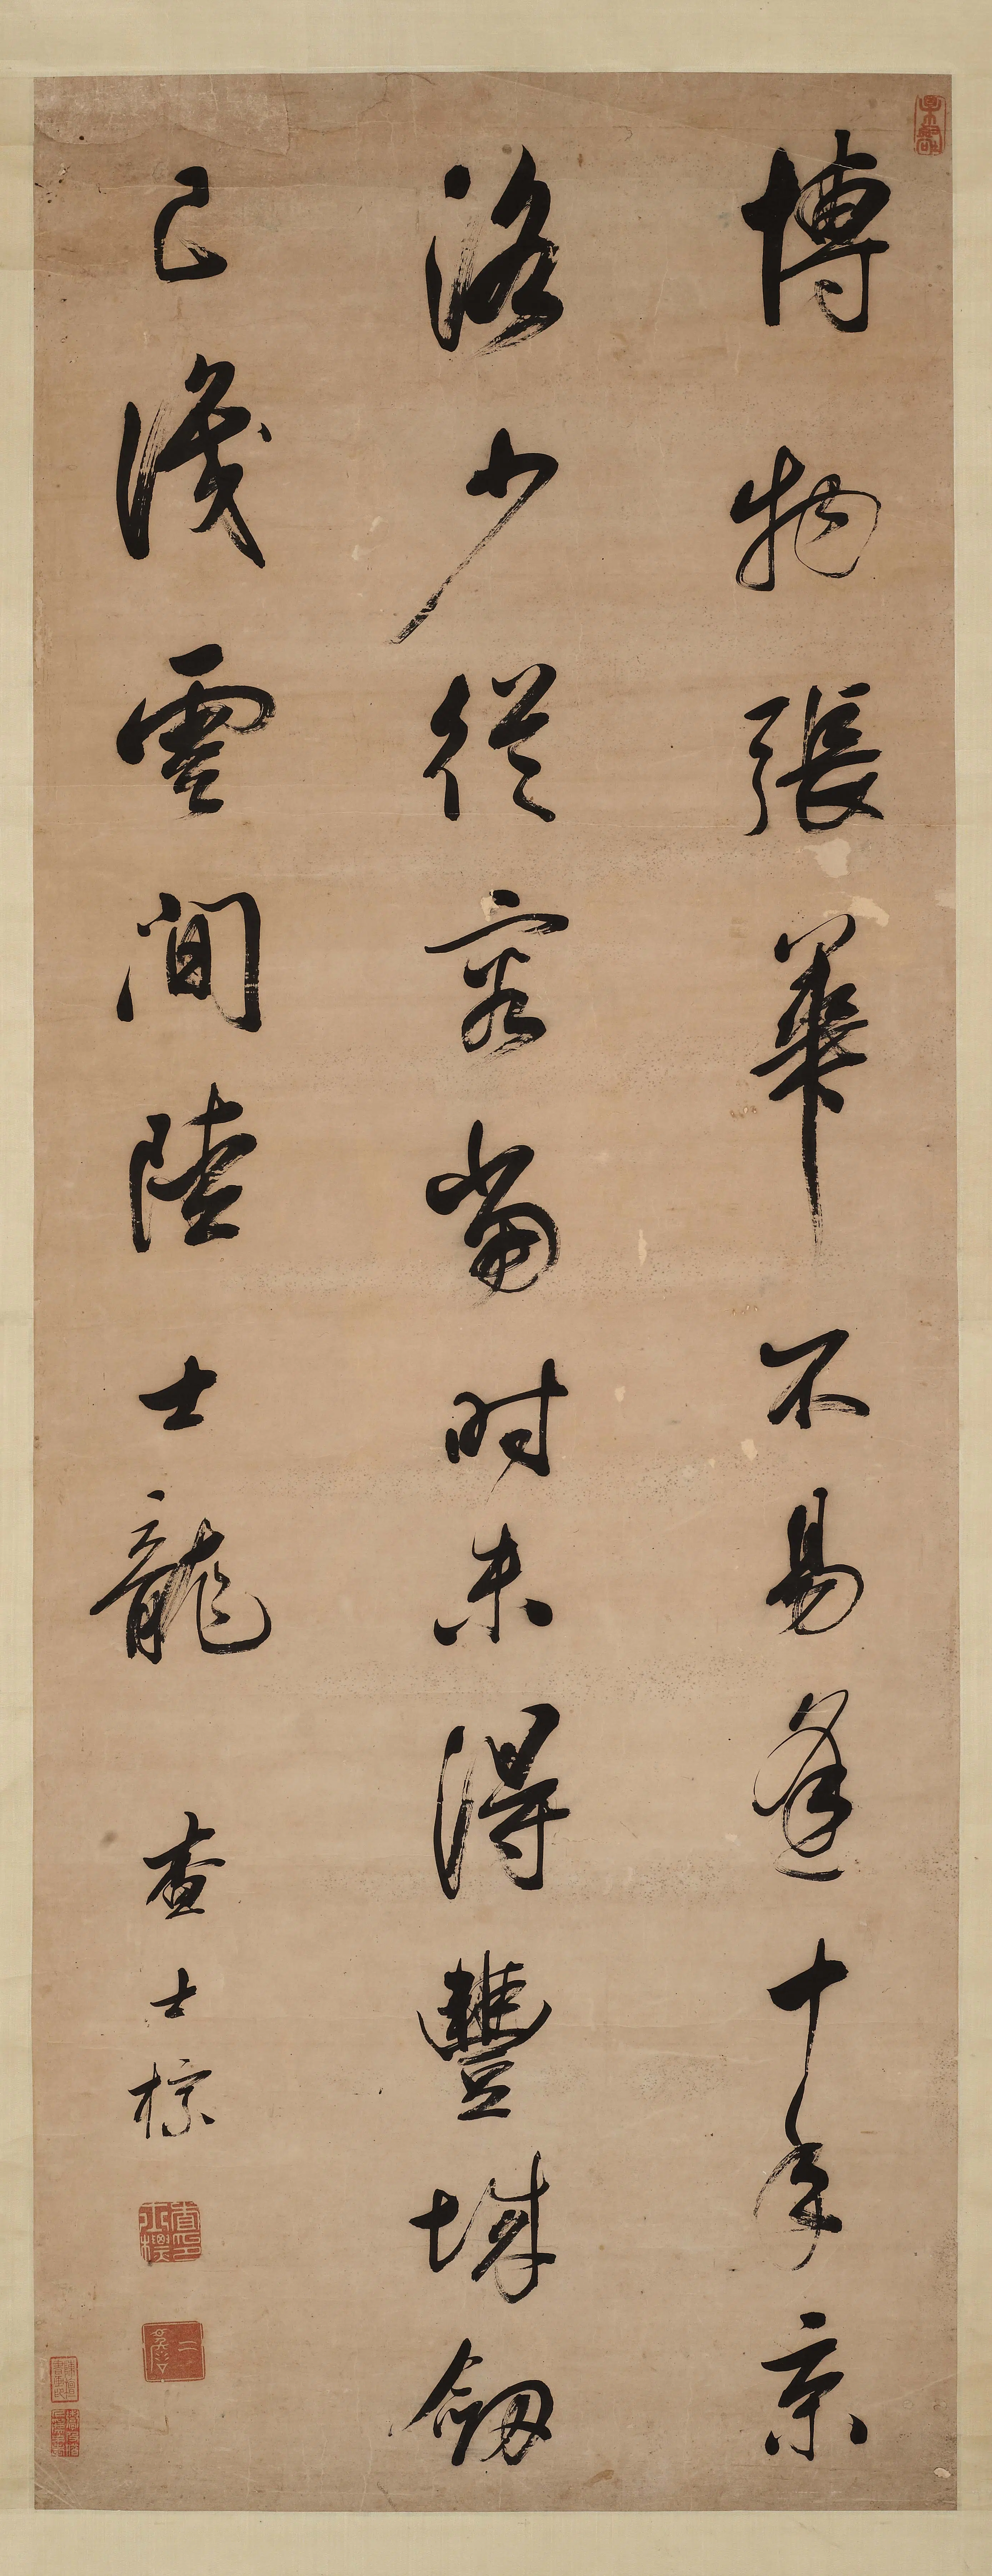 博物張華不易逢十年京
洛少從容當時未得豐城劔
已識雲間陸士龍
查士標